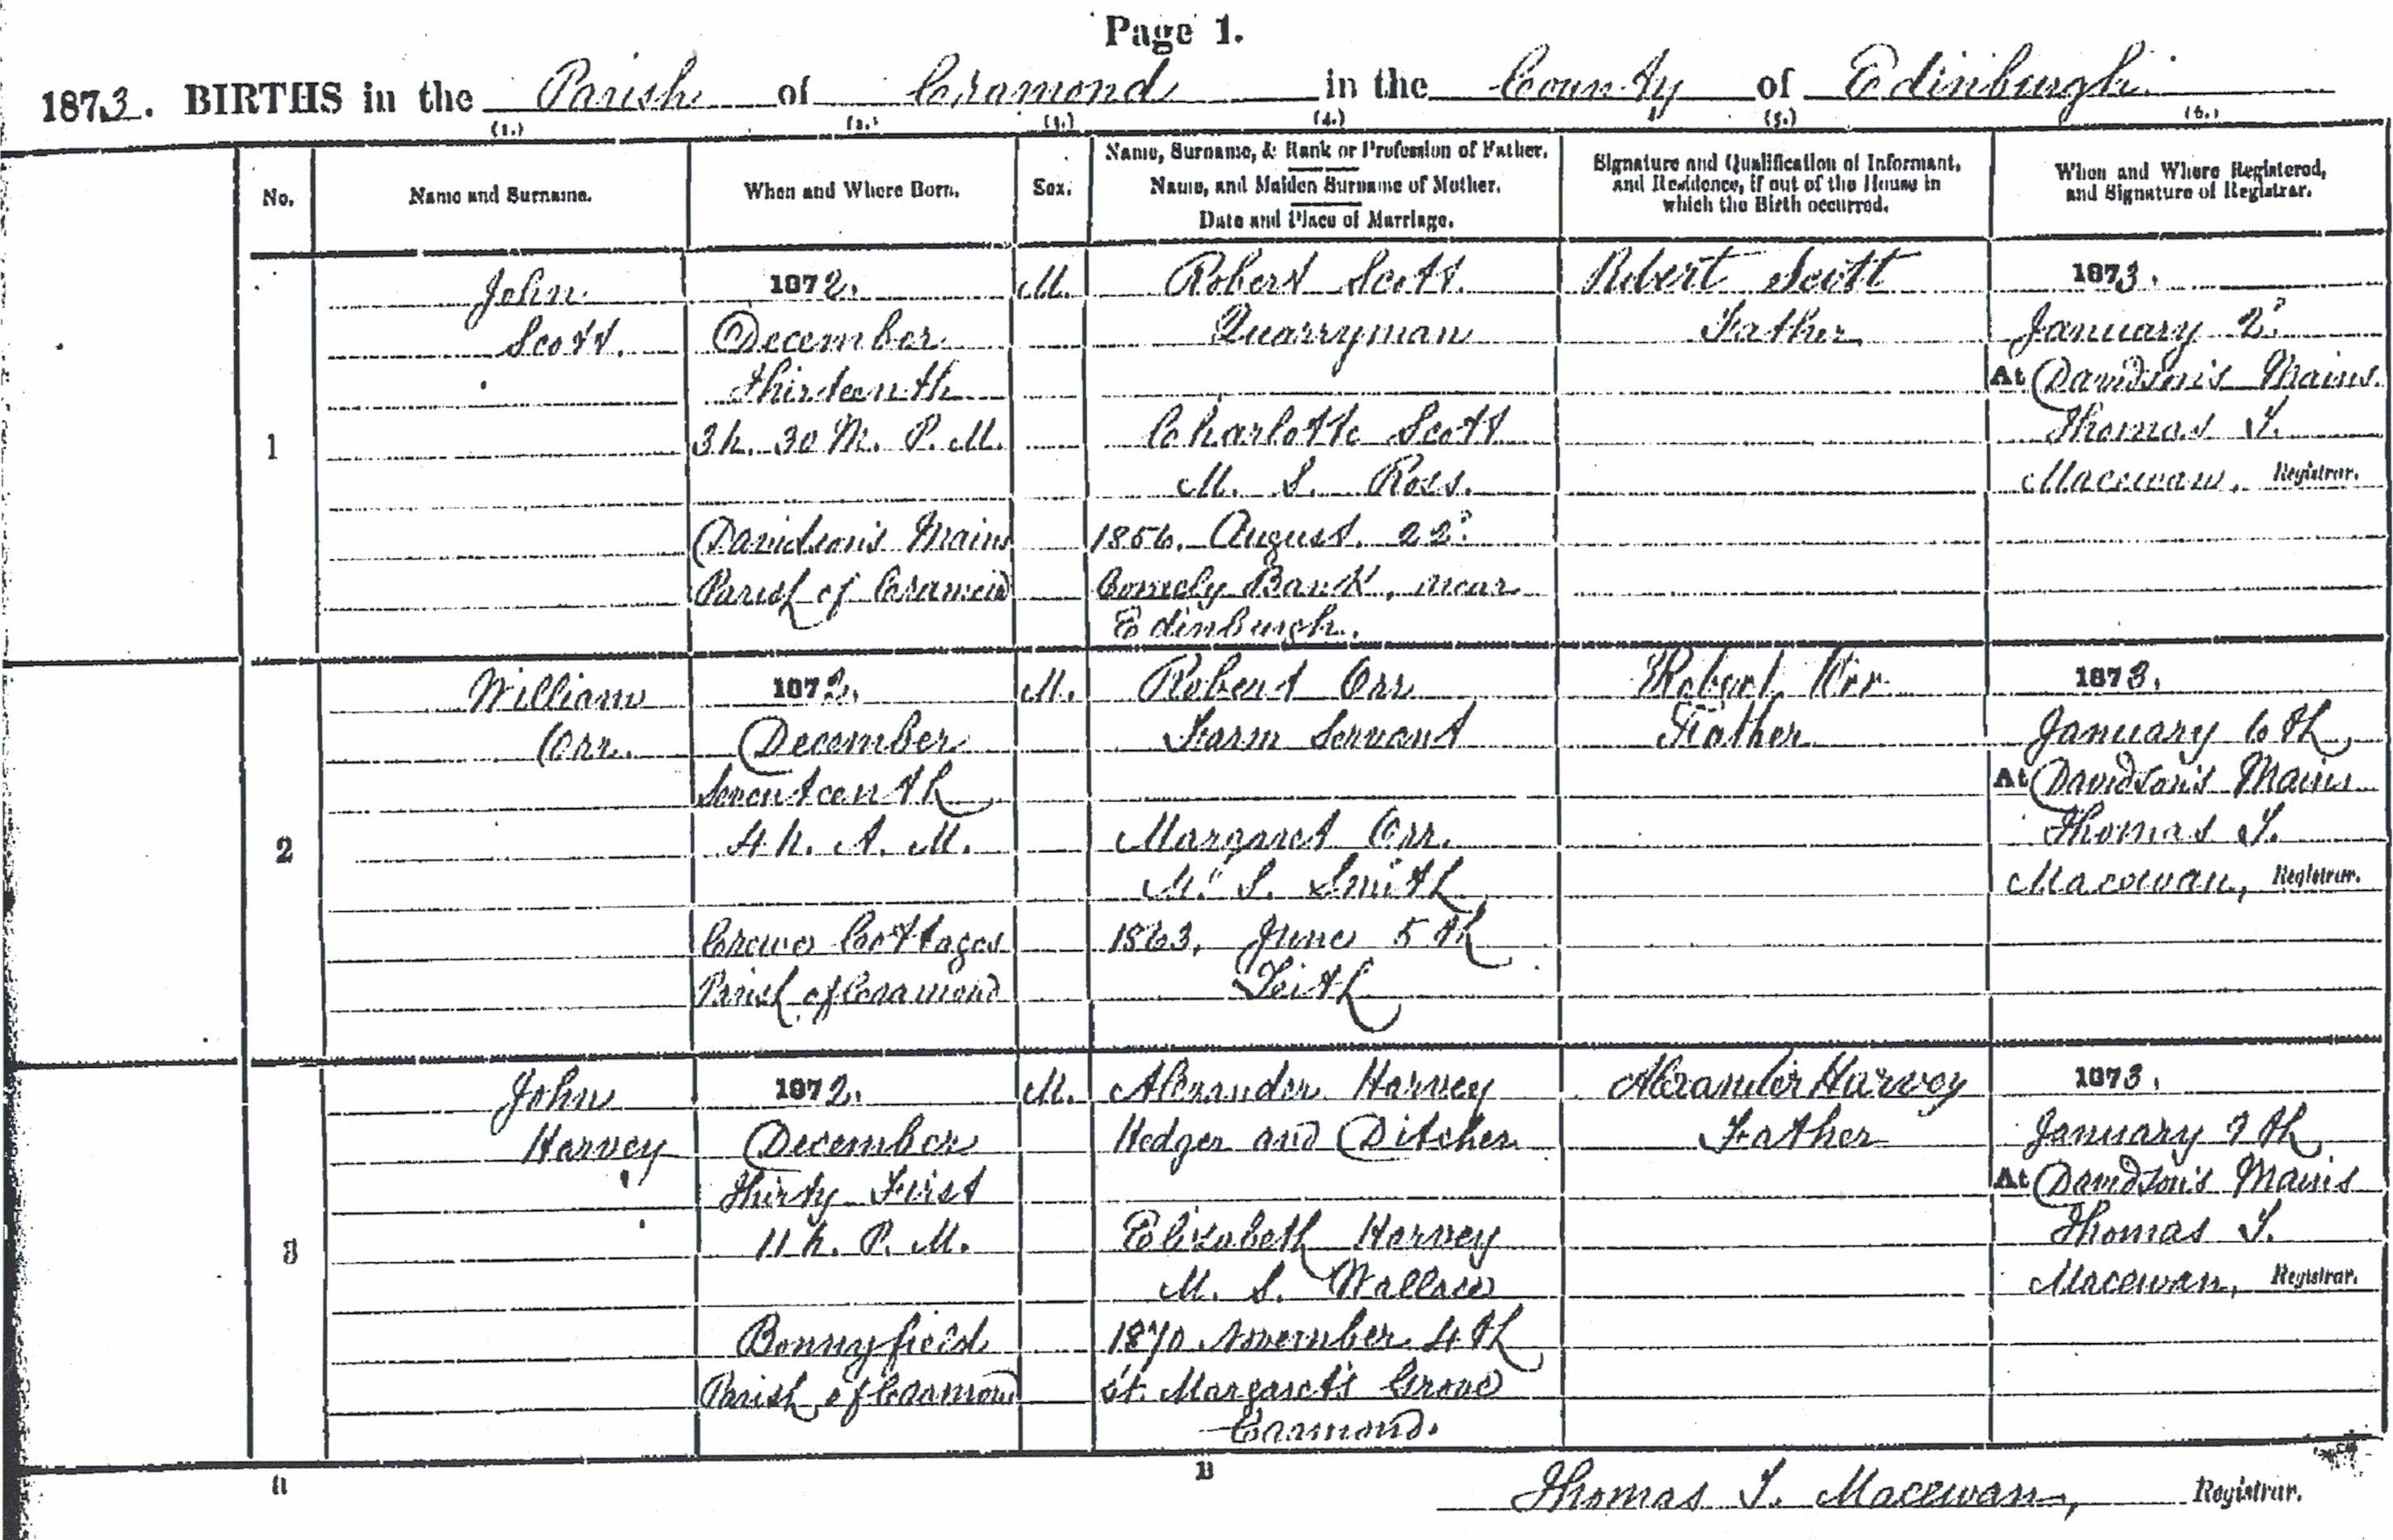 Page 1.
1873. BIRTHS in the Parish of Cramond in the County of Edinburgh
(1.) (2.) (3.) (4.) (5.) (6.)
No.
Name and Surname.
When and Where Born.
Sex.
Name, Surname, & Rank or Profession of Father.
Name, and Maiden Surname of Mother.
Date and Place of Marriage.
Signature and Qualification of Informant,
and Residence, if out of the House in
which the Birth occurred.
When and Where Registered,
and Signature of Registrar.
1
John
Scott.
1872.
December
thirteenth
3h. 30 M. P. M.
Davidson's Mains
Parish of Cramond
M.
Robert Scott.
Quarryman
Charlotte Scott
M. S. Ross.
1856. August. 22d
Comely Bank, near
Edinburgh.
Robert Scott
Father.
1873.
January 2d
At Davidson's Mains.
Thomas T.
Macewan, Registrar.
2
William
Orr.
1872.
December
Seventeenth
4 h. A. M.
Crewe Cottages
Parish of Cramond
M.
Robert Orr
Farm Servant
Margaret Orr.
M. S. Smith
1863, June 5th
Leith
Robert Orr
Father
1873.
January 6th
At Davidson's Mains
Thomas T.
Macewan, Registrar.
3
John
Harvey
1872.
December
Thirty First
11 h. P. M.
Bonnyfield
Parish of Cramond
M.
Alexander Harvey
Hedger and Ditcher
Elizabeth Harvey
M. S. Wallace
1870 November 4th
St. Margaret's Grove
Cramond.
Alexander Harvey
Father
1873.
January
At Davidson's Mains
Thomas T.
Macewan, Registrar.
B
Thomas T. Macewan, Registrar.